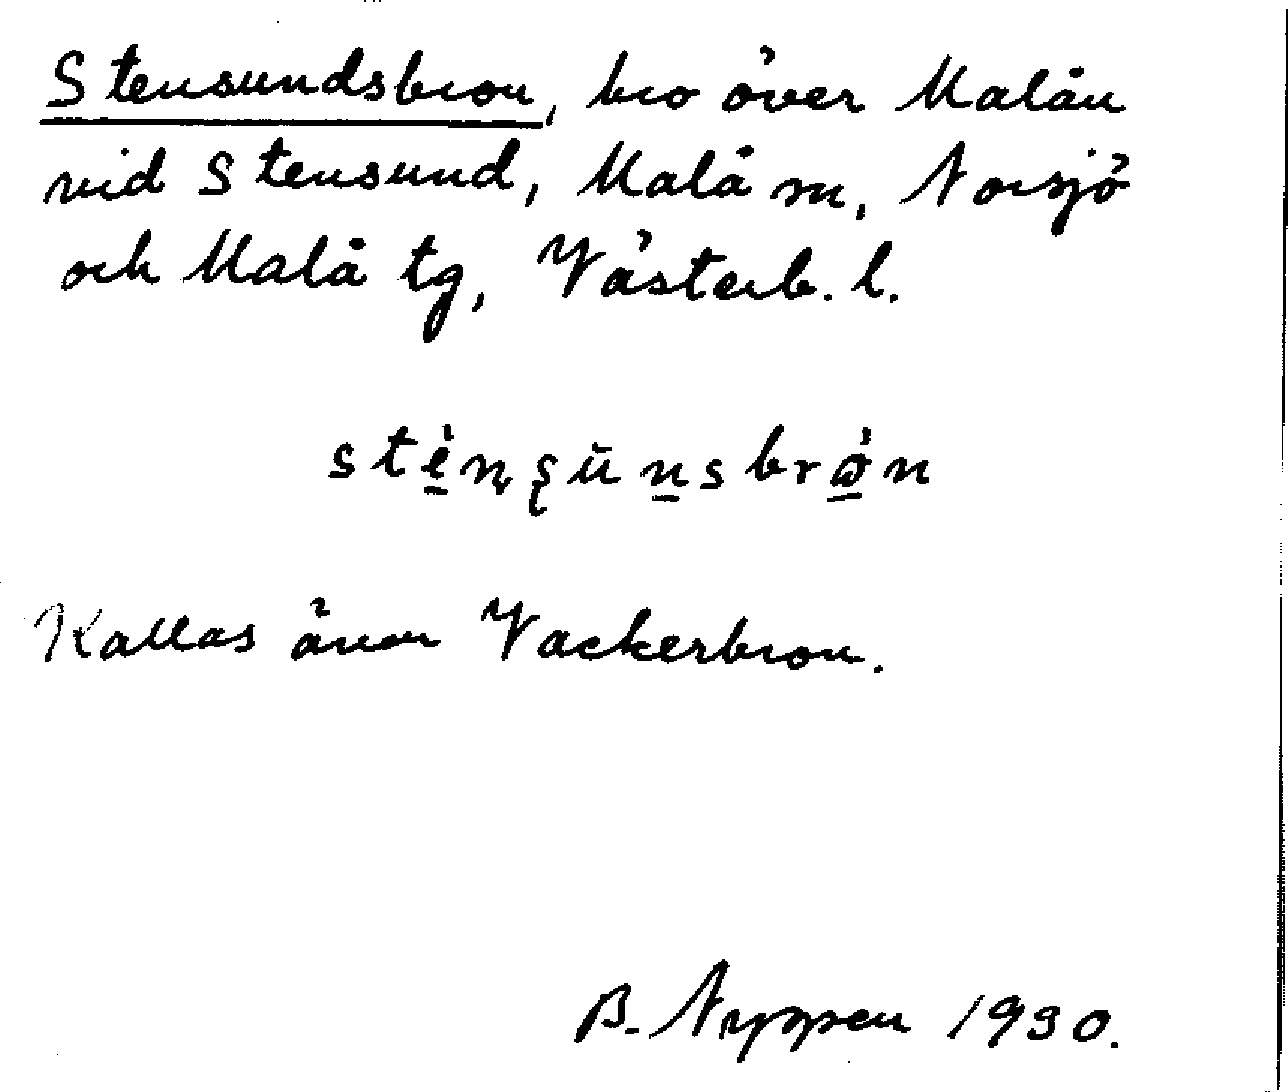 Stensundsbron, bro över Malån
vid Stensund, Malå sn, Norsjö
och Malå tg, Västerb. l.
stèn̥ʂŭn̲sbrὼ̲n
Kallas även Vackerbron.
B. Nyppen 1930.